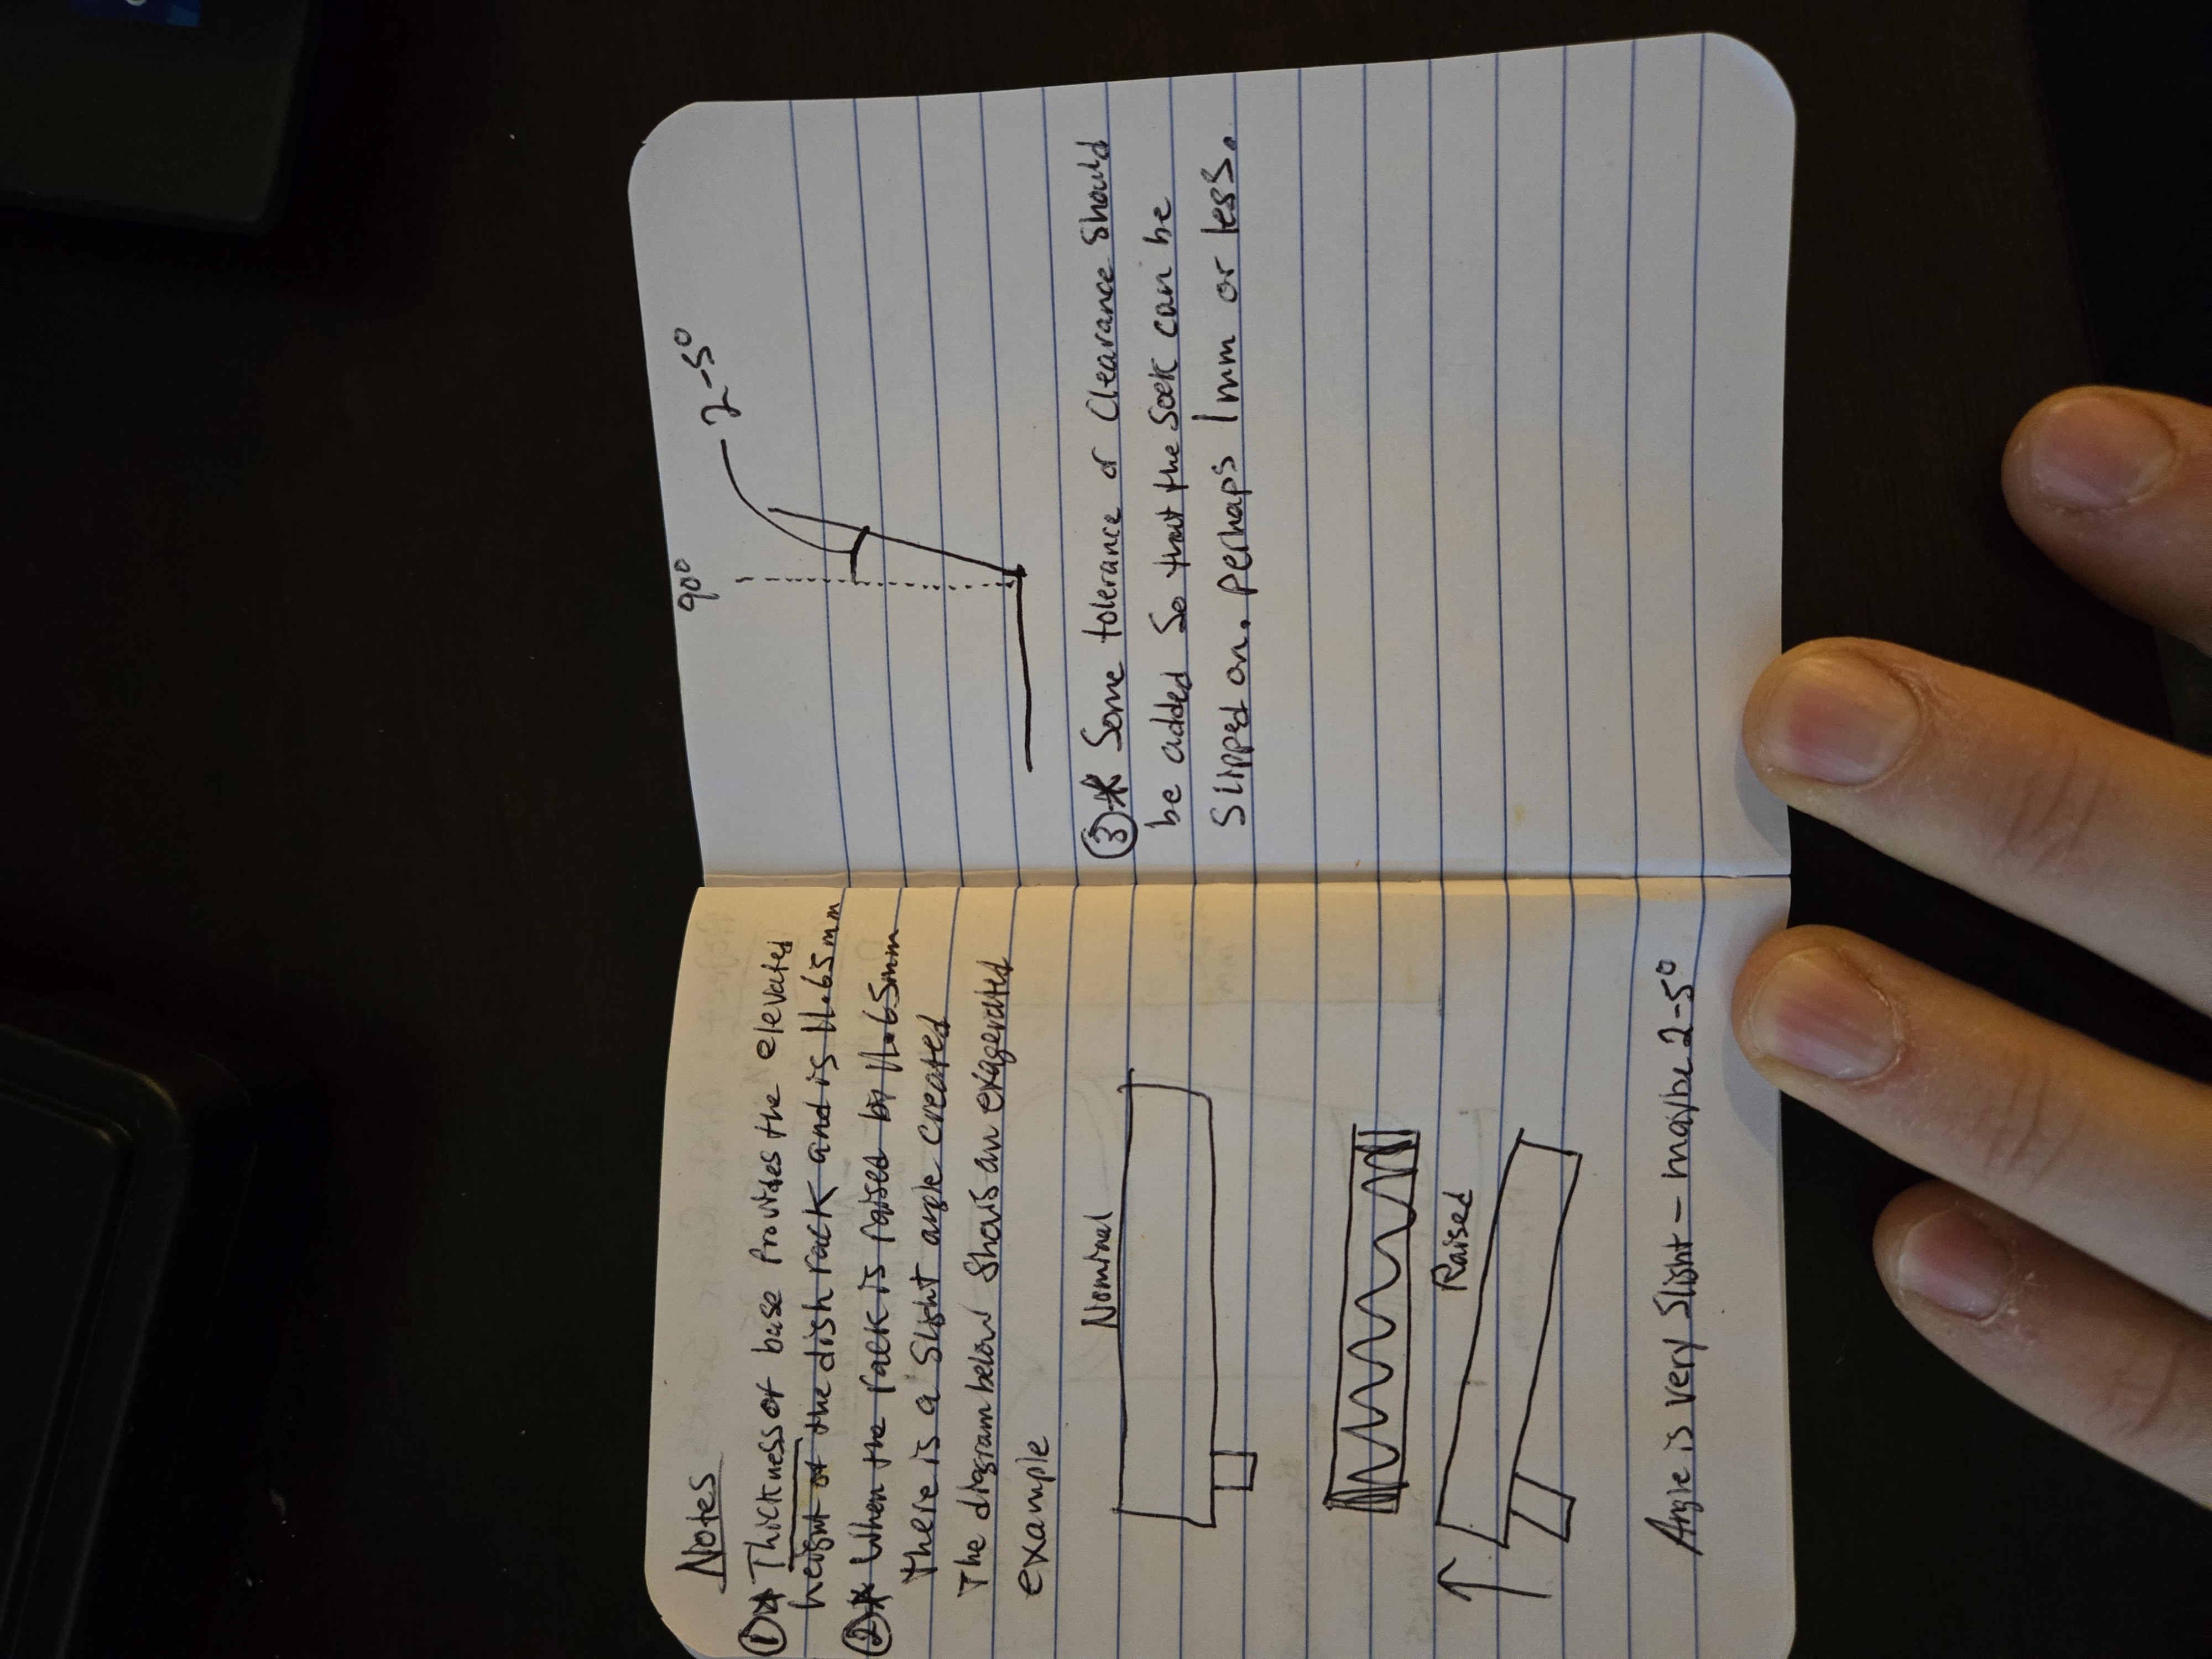 Notes
①* Thickness of base Provides the elevated
height of the dish rack and is 11.65mm
②* When the rack is raised by 11.65mm
there is a slight angle created
The diagram below Shows an exagerated
example
Nominal
Raised
Angle is very Slight - maybe 2-5°
90°
2-5°
③* Some tolerance or Clearance Should
be added So that the Sock can be
Slipped on. perhaps 1mm or less.